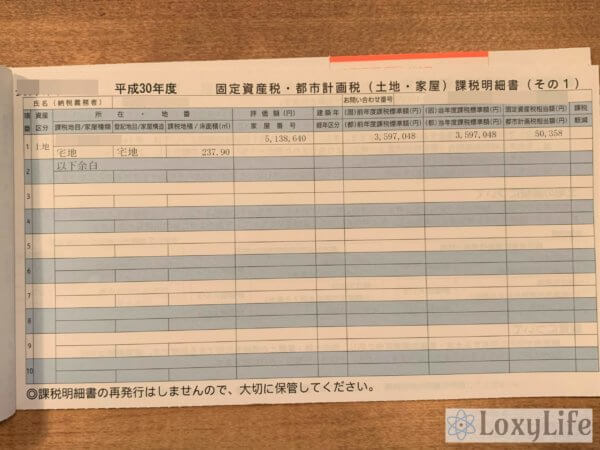 平成30年度 固定資産税・都市計画税（土地・家屋）課税明細書（その1）
氏名（納税義務者） お問い合わせ番号
項番 資産区分 所在・地番 評価額(円) 建築年 (固)前年度課税標準額(円) (固)当年度課税標準額(円) 固定資産税相当額(円) 課税
課税地目/家屋種類 登記地目/家屋構造 課税地積/床面積(㎡) 家屋番号 経年区分 (都)前年度課税標準額(円) (都)当年度課税標準額(円) 都市計画税相当額(円) 軽減
1 土地 5,138,640 3,597,048 3,597,048 50,358
宅地 宅地 237.90
2 以下余白
3
4
5
6
7
8
9
10
◎課税明細書の再発行はしませんので、大切に保管してください。
LoxyLife